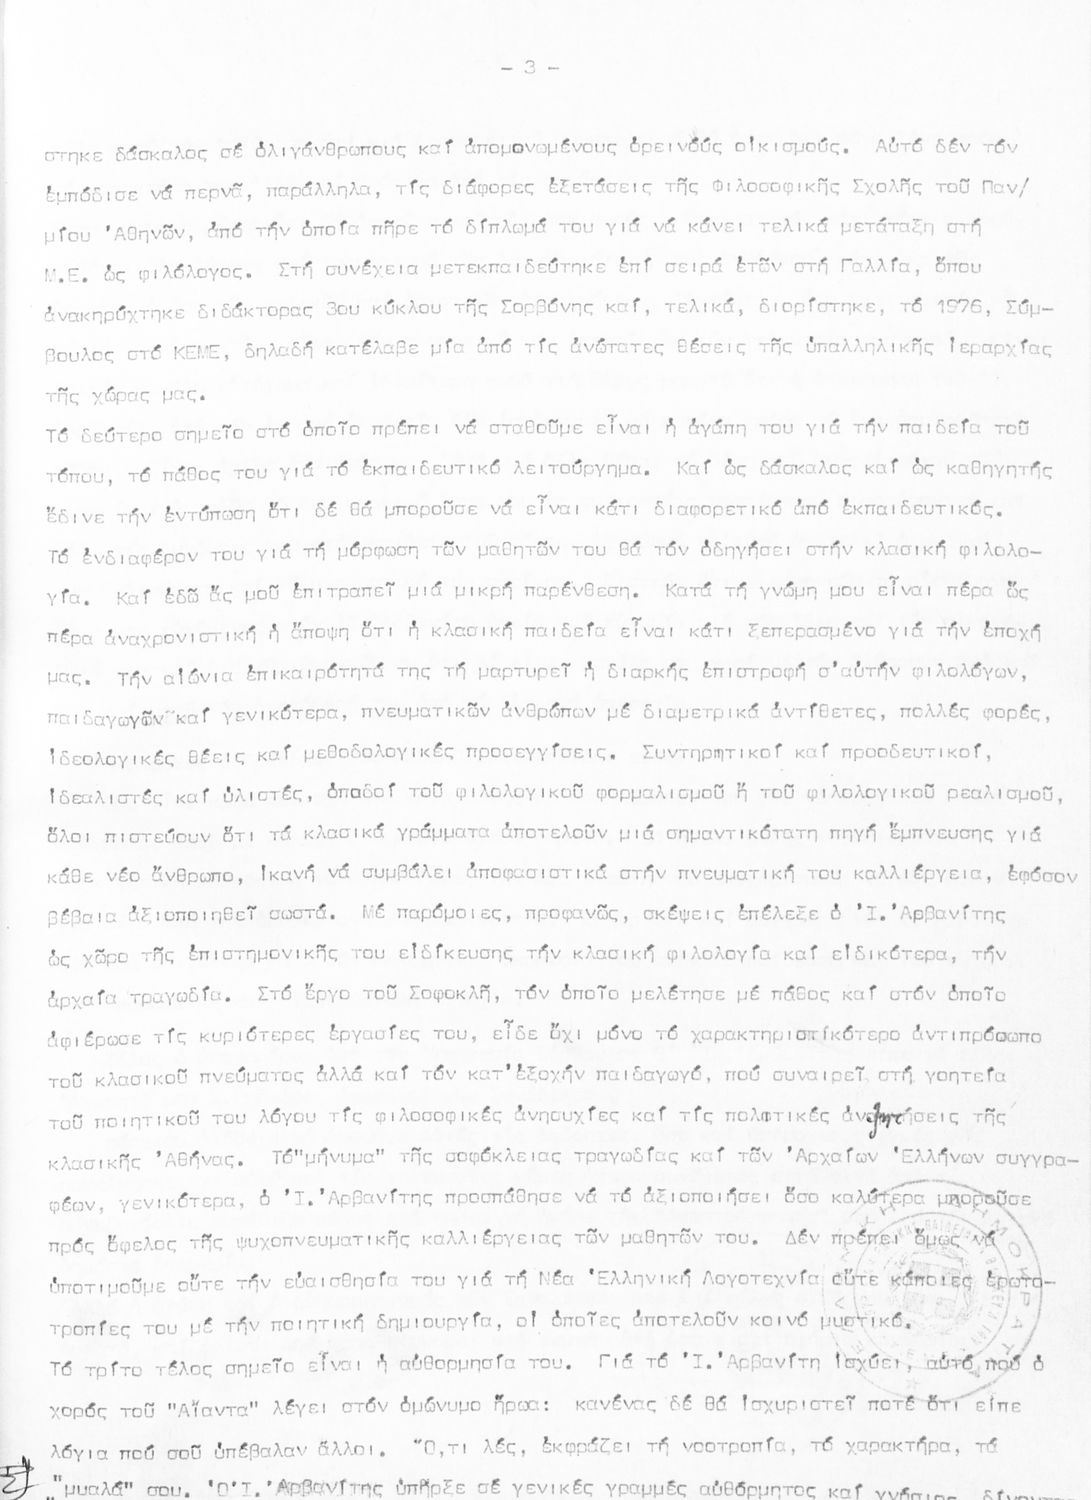 - 3 -
στηκε δάσκαλος σέ ὀλιγάνθρωπους καί ἀπομονωμένους ὀρεινούς οἰκισμούς. Αὐτό δέν τόν
ἐμπόδισε νά περνᾶ, παράλληλα, τίς διάφορες ἐξετάσεις τῆς Φιλοσοφικῆς Σχολῆς τοῦ Παν/
μίου Ἀθηνῶν, ἀπό τήν ὁποία πῆρε τό δίπλωμά του γιά νά κάνει τελικά μετάταξη στή
Μ.Ε. ὡς φιλόλογος. Στή συνέχεια μετεκπαιδεύτηκε ἐπί σειρά ἐτῶν στή Γαλλία, ὅπου
ἀνακηρύχτηκε διδάκτορας 3ου κύκλου τῆς Σορβόνης καί, τελικά, διορίστηκε, τό 1976, Σύμ-
βουλος στό ΚΕΜΕ, δηλαδή κατέλαβε μία ἀπό τίς ἀνώτατες θέσεις τῆς ὑπαλληλικῆς ἱεραρχίας
τῆς χώρας μας.
Τό δεύτερο σημεῖο στό ὁποῖο πρέπει νά σταθοῦμε εἶναι ἡ ἀγάπη του γιά τήν παιδεία τοῦ
τόπου, τό πάθος του γιά τό ἐκπαιδευτικό λειτούργημα. Καί ὡς δάσκαλος καί ὡς καθηγητής
ἔδινε τήν ἐντύπωση ὅτι δέ θά μποροῦσε νά εἶναι κάτι διαφορετικό ἀπό ἐκπαιδευτικός.
Τό ἐνδιαφέρον του γιά τή μόρφωση τῶν μαθητῶν του θά τόν ὁδηγήσει στήν κλασική φιλολο-
γία. Καί ἐδῶ ἄς μοῦ ἐπιτραπεῖ μιά μικρή παρένθεση. Κατά τή γνώμη μου εἶναι πέρα ὥς
πέρα ἀναχρονιστική ἡ ἄποψη ὅτι ἡ κλασική παιδεία εἶναι κάτι ξεπερασμένο γιά τήν ἐποχή
μας. Τήν αἰώνια ἐπικαιρότητά της τή μαρτυρεῖ ἡ διαρκής ἐπιστροφή σ'αὐτήν φιλολόγων,
παιδαγωγῶν καί γενικότερα, πνευματικῶν ἀνθρώπων μέ διαμετρικά ἀντίθετες, πολλές φορές,
ἰδεολογικές θέεις καί μεθοδολογικές προσεγγίσεις. Συντηρητικοί καί προοδευτικοί,
ἰδεαλιστές καί ὑλιστές, ὀπαδοί τοῦ φιλολογικοῦ φορμαλισμοῦ ἤ τοῦ φιλολογικοῦ ρεαλισμοῦ,
ὅλοι πιστεύουν ὅτι τά κλασικά γράμματα ἀποτελοῦν μιά σημαντικότατη πηγή ἔμπνευσης γιά
κάθε νέο ἄνθρωπο, ἱκανή νά συμβάλει ἀποφασιστικά στήν πνευματική του καλλιέργεια, ἐφόσον
βέβαια ἀξιοποιηθεῖ σωστά. Μέ παρόμοιες, προφανῶς, σκέψεις ἐπέλεξε ὁ Ἰ. Ἀρβανίτης
ὡς χῶρο τῆς ἐπιστημονικῆς του εἰδίκευσης τήν κλασική φιλολογία καί εἰδικότερα, τήν
ἀρχαία τραγωδία. Στό ἔργο τοῦ Σοφοκλῆ, τόν ὁποῖο μελέτησε μέ πάθος καί στόν ὁποῖο
ἀφιέρωσε τίς κυριότερες ἐργασίες του, εἶδε ὄχι μόνο τό χαρακτηριστικότερο ἀντιπρόσωπο
τοῦ κλασικοῦ πνεύματος ἀλλά καί τόν κατ'ἐξοχήν παιδαγωγό, πού συναιρεῖ στή γοητεία
τοῦ ποιητικοῦ του λόγου τίς φιλοσοφικές ἀνησυχίες καί τίς πολιτικές ἀναζητήσεις τῆς
κλασικῆς Ἀθήνας. Τό"μήνυμα" τῆς σοφόκλειας τραγωδίας καί τῶν Ἀρχαίων Ἑλλήνων συγγρα-
φέων, γενικότερα, ὁ Ἰ. Ἀρβανίτης προσπάθησε νά τό ἀξιοποιήσει ὅσο καλύτερα μποροῦσε
πρός ὄφελος τῆς ψυχοπνευματικῆς καλλιέργειας τῶν μαθητῶν του. Δέν πρέπει ὅμως νά
ὑποτιμοῦμε οὔτε τήν εὐαισθησία του γιά τή Νέα Ἑλληνική Λογοτεχνία οὔτε κάποιες ἐρωτο-
τροπίες του μέ τήν ποιητική δημιουργία, οἱ ὁποῖες ἀποτελοῦν κοινό μυστικό.
Τό τρίτο τέλος σημεῖο εἶναι ἡ αὐθορμησία του. Γιά τό Ἰ. Ἀρβανίτη ἰσχύει, αὐτό πού ὁ
χορός τοῦ "Αἴαντα" λέγει στόν ὁμώνυμο ἥρωα: κανένας δέ θά ἰσχυριστεῖ ποτέ ὅτι εἶπε
λόγια πού σοῦ ὑπέβαλαν ἄλλοι. Ὅ,τι λές, ἐκφράζει τή νοοτροπία, τό χαρακτήρα, τά
"μυαλά" σου. Ὁ Ἰ. Ἀρβανίτης ὑπῆρξε σέ γενικές γραμμές αὐθόρμητος καί γνήσιος,